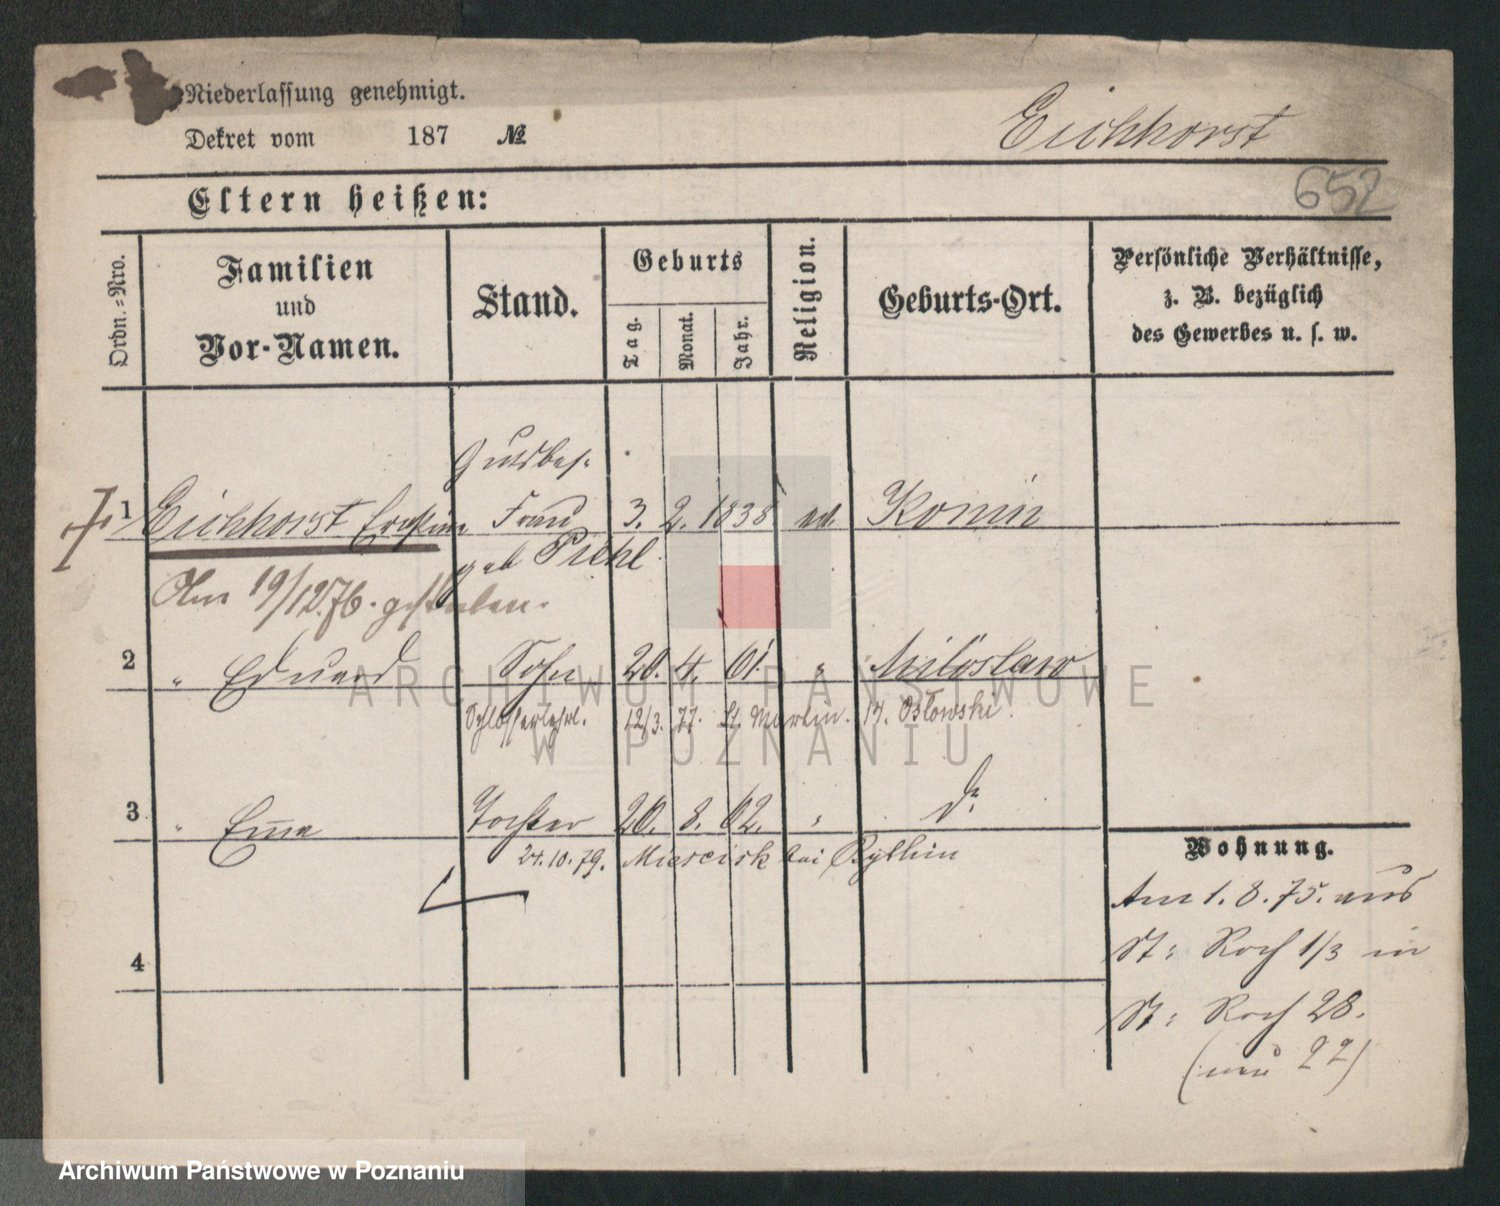 Niederlassung genehmigt.
Dekret vom 187 №
Eichhorst
652
Eltern heißen:
Ordn.=Nro.
Familien
und
Vor-Namen.
Stand.
Geburts
Tag.
Monat.
Jahr.
Religion.
Geburts-Ort.
Persönliche Verhältnisse,
z. B. bezüglich
des Gewerbes u. s. w.
Gutsbes.
1 Eichhorst Frau 3. 2. 1838 ev. Konin
geb Piehl
Am 19/12.76. gestorben.
2 " Eduard Sohn 20. 4. 61. " Miloslaw
Schlosserlehrl. 12/3. 77. St. Martin. 17. Osłowski.
3 " Emma Tochter 20. 8. 62. " do
24.10.79. bei
4
Wohnung.
Am 1. 8. 75. aus
St: Roch 1/3 in
St: Roch 28.
(neu 22)
ARCHIWUM PAŃSTWOWE
W POZNANIU
Archiwum Państwowe w Poznaniu